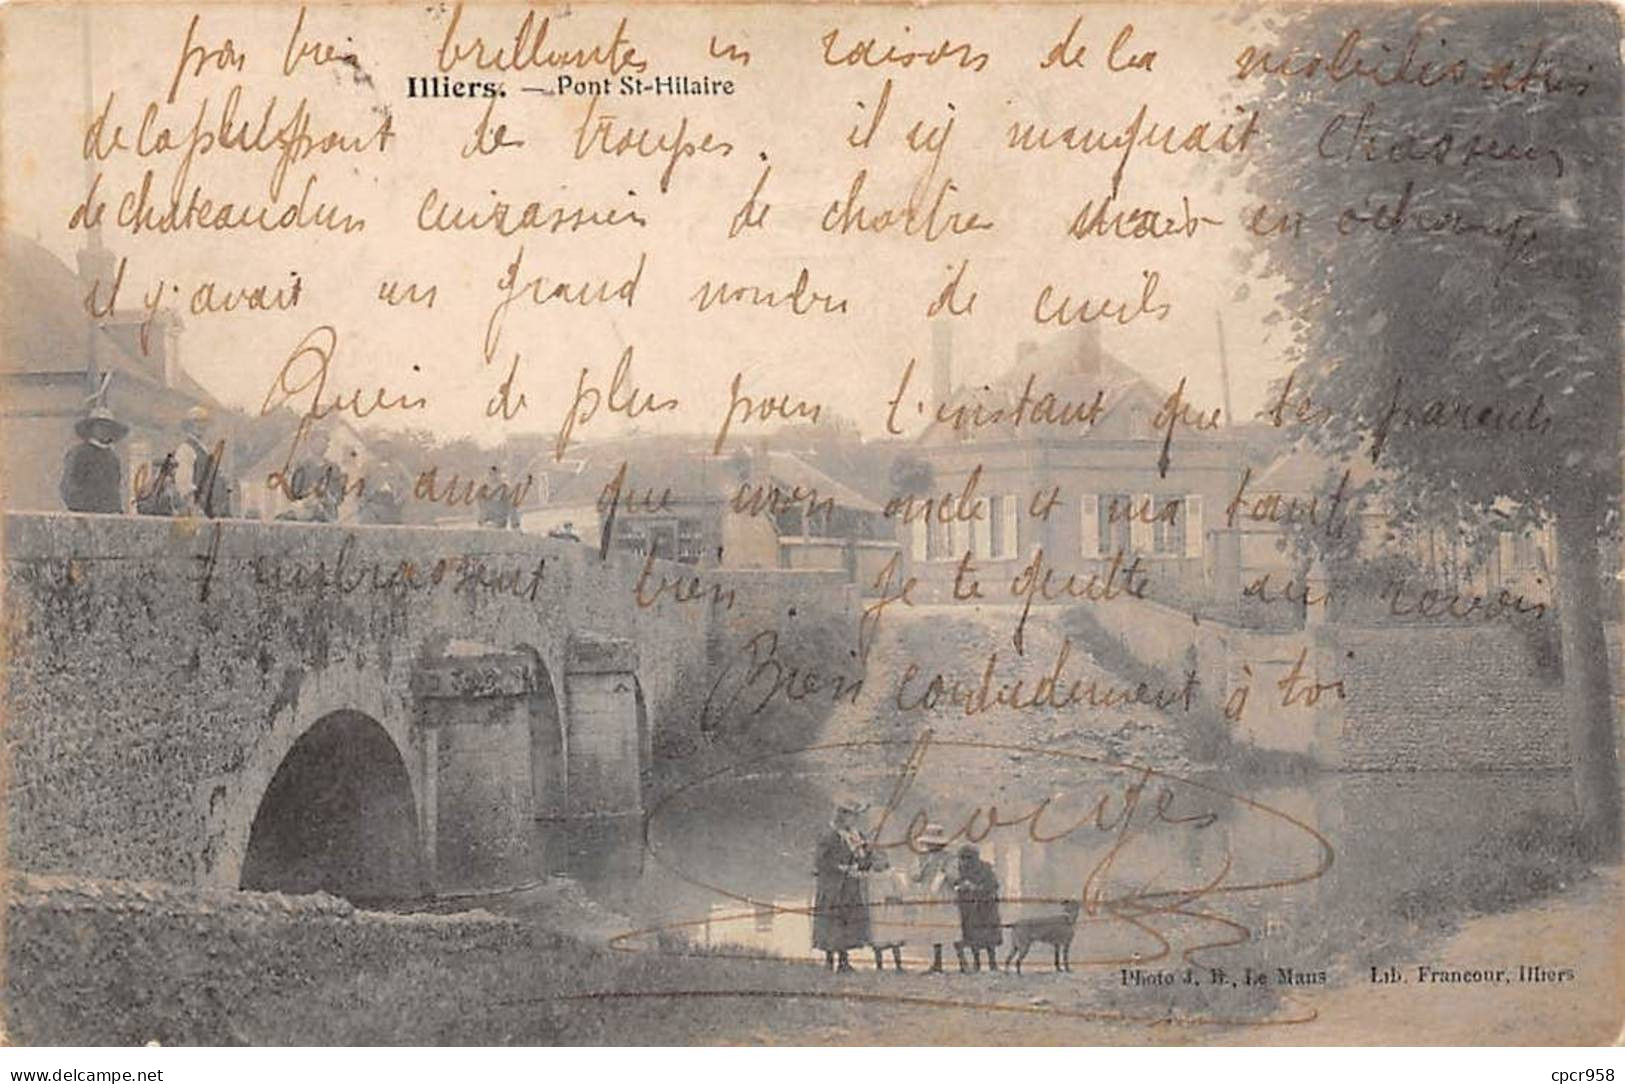 pas bien brillantes en raison de la mobilisation
Illiers. — Pont St-Hilaire
de la plupart des troupes. il y manquait Chasseurs
de chateaudun cuirassier de chartres mais en échange
il y avait un grand nombre de civils
Rien de plus pour l'instant que tes parents
et Léon ainsi que mon oncle et ma tante
t'embrassent bien. Je te quitte au revoir
Bien cordialement à toi
Georges
Photo J. B., Le Mans Lib. Francour, Illiers
delcampe.net
cpcr958